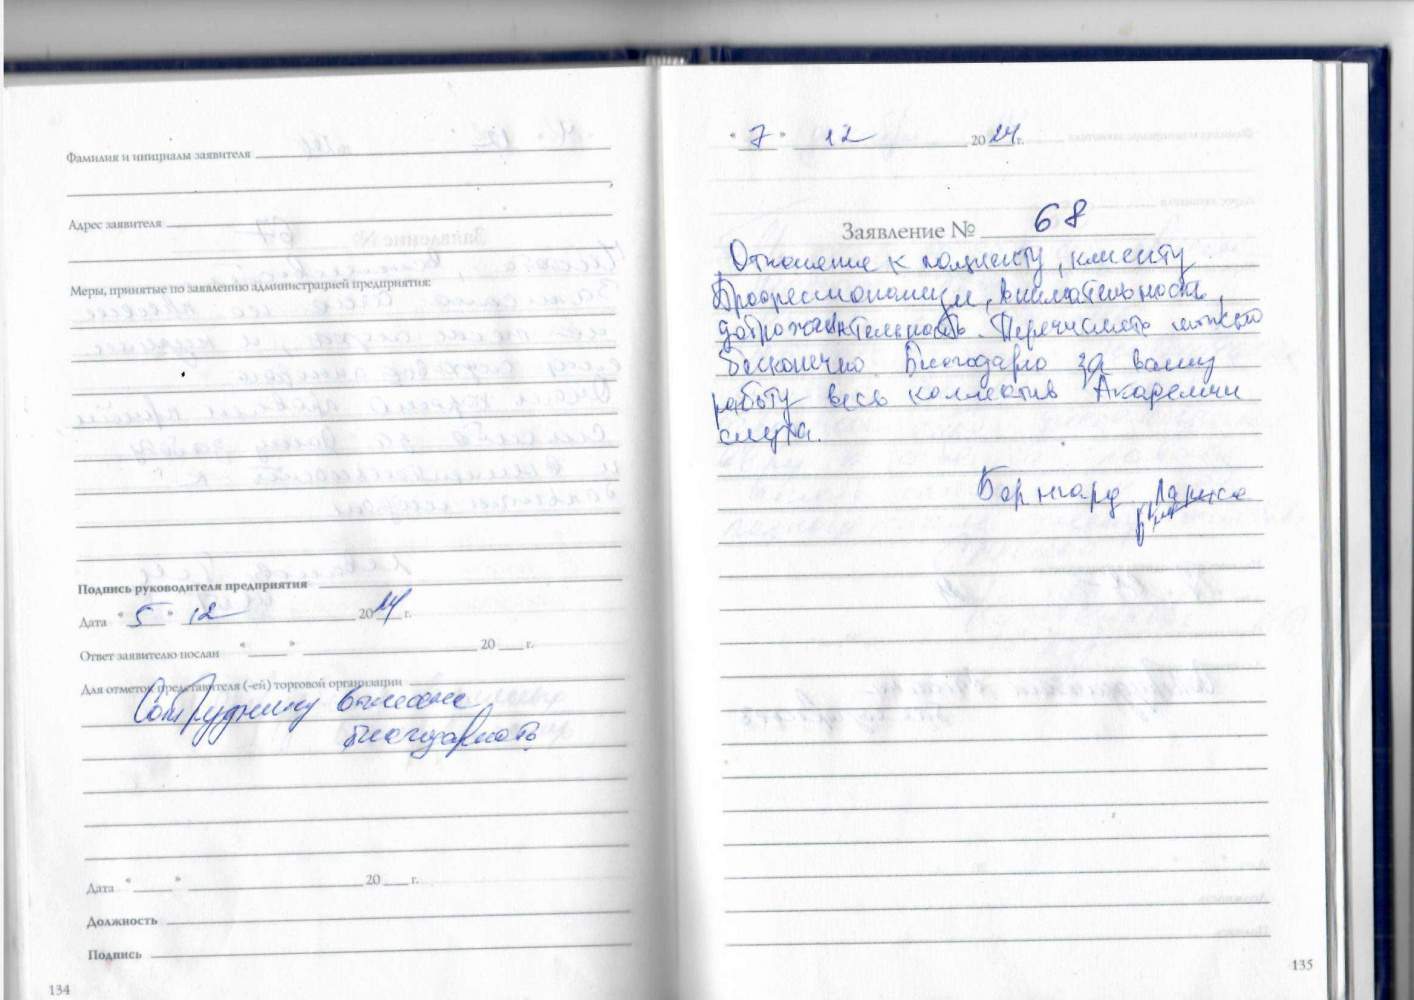 Фамилия и инициалы заявителя
Адрес заявителя
Меры, принятые по заявлению администрацией предприятия:
Подпись руководителя предприятия
Дата "5" 12 2024 г.
Ответ заявителю послан " " 20 г.
Для отметок представителя (-ей) торговой организации
Сотруднику вынесена
благодарность
Дата " " 20 г.
Должность
Подпись
134
"7" 12 2024 г.
Заявление № 68
Отношение к пациенту, клиенту
Профессионализм, внимательность,
доброжелательность. Перечислять можно
бесконечно. Благодарю за вашу
работу весь коллектив Академии
слуха.
Лариса
135